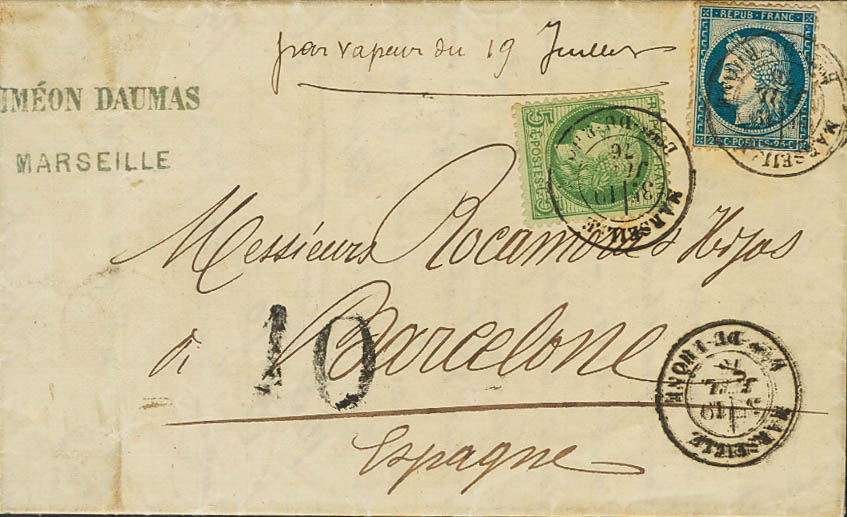 par vapeur du 19 Juillet
IMÉON DAUMAS
MARSEILLE
REPUB. FRANC.
25 C. POSTES. 25 C.
5 C. POSTES. 5 C.
MARSEILLE
Messieurs Rocamora & Hijos
à Barcelone
10
Espagne
MARSEILLE
19